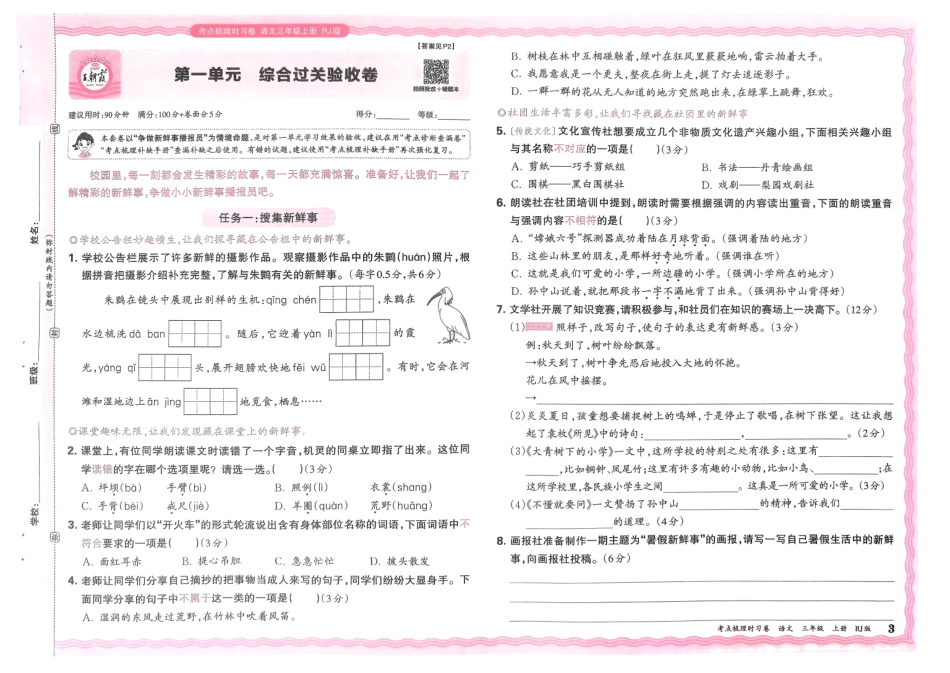 考点梳理时习卷 语文三年级上册 RJ版
王朝霞
【答案见P2】
第一单元 综合过关验收卷
拍照批改+错题本
建议用时:90分钟 满分:100分+卷面分5分 得分:________ 等级:________
本套卷以“争做新鲜事播报员”为情境命题,是对第一单元学习效果的验收,建议在用“考点诊断查漏卷”
“考点梳理补缺手册”查漏补缺之后使用。有错的试题,建议使用“考点梳理补缺手册”再次强化复习。
校园里,每一刻都会发生精彩的故事,每一天都充满惊喜。准备好,让我们一起了
解精彩的新鲜事,争做小小新鲜事播报员吧。
任务一:搜集新鲜事
◎学校公告栏妙趣横生,让我们探寻藏在公告栏中的新鲜事。
1. 学校公告栏展示了许多新鲜的摄影作品。观察摄影作品中的朱鹮(huán)照片,根
据拼音把摄影介绍补充完整,了解与朱鹮有关的新鲜事。(每字0.5分,共6分)
朱鹮在镜头中展现出别样的生机:qīng chén ,朱鹮在
水边梳洗dǎ ban 。随后,它迎着yàn lì 的霞
光,yáng qǐ 头,展开翅膀欢快地fēi wǔ 。有时,它会在河
滩和湿地边上ān jìng 地觅食,栖息……
◎课堂趣味无限,让我们发现藏在课堂上的新鲜事。
2. 课堂上,有位同学朗读课文时读错了一个字音,机灵的同桌立即指了出来。这位同
学读错的字在哪个选项里呢?请选一选。( )(3分)
A. 坪坝(bà) 手臂(bì) B. 照例(lì) 衣裳(shang)
C. 手背(bèi) 戒尺(jiè) D. 羊圈(quàn) 荒野(huāng)
3. 老师让同学们以“开火车”的形式轮流说出含有身体部位名称的词语,下面词语中不
符合要求的一项是( )(3分)
A. 面红耳赤 B. 提心吊胆 C. 急急忙忙 D. 披头散发
4. 老师让同学们分享自己摘抄的把事物当成人来写的句子,同学们纷纷大显身手。下
面同学分享的句子中不属于这一类的一项是( )(3分)
A. 湿润的东风走过荒野,在竹林中吹着风笛。
B. 树枝在林中互相碰触着,绿叶在狂风里簌簌地响,雷云拍着大手。
C. 我愿意我是一个更夫,整夜在街上走,提了灯去追逐影子。
D. 一群一群的花从无人知道的地方突然跑出来,在绿草上跳舞,狂欢。
◎社团生活丰富多彩,让我们寻找藏在社团里的新鲜事
5. [传统文化]文化宣传社想要成立几个非物质文化遗产兴趣小组,下面相关兴趣小组
与其名称不对应的一项是( )(3分)
A. 剪纸——巧手剪纸组 B. 书法——丹青绘画组
C. 围棋——黑白围棋社 D. 戏剧——梨园戏剧社
6. 朗读社在社团培训中提到,朗读时需要根据强调的内容读出重音,下面的朗读重音
与强调内容不相符的是( )(3分)
A. “嫦娥六号”探测器成功着陆在月球背面。(强调着陆的地方)
B. 这些山林里的朋友,是那样好奇地听着。(强调谁在听)
C. 这就是我们可爱的小学,一所边疆的小学。(强调小学所在的地方)
D. 孙中山说着,就把那段书一字不漏地背了出来。(强调孙中山背得好)
7. 文学社开展了知识竞赛,请积极参与,和社员们在知识的赛场上一决高下。(12分)
(1) 照样子,改写句子,使句子的表达更有新鲜感。(3分)
例:秋天到了,树叶纷纷飘落。
→秋天到了,树叶争先恐后地投入大地的怀抱。
花儿在风中摇摆。
→________________
(2)炎炎夏日,孩童想要捕捉树上的鸣蝉,于是停止了歌唱,在树下张望。这让我想
起了袁枚《所见》中的诗句:________________,________________。(2分)
(3)《大青树下的小学》一文中,这所学校的特别之处有很多:这里有________________
________,比如铜钟、凤尾竹;这里有许多有趣的小动物,比如小鸟、________;在
这所学校里,各民族小学生之间________________。这真是一所可爱的小学。(3分)
(4)《不懂就要问》一文赞扬了孙中山________________的精神,告诉我们________
________________的道理。(4分)
8. 画报社准备制作一期主题为“暑假新鲜事”的画报,请写一写自己暑假生活中的新鲜
事,向画报社投稿。(6分)
考点梳理时习卷 语文 三年级 上册 RJ版 3
姓名:
班级:
学校:
(弥封线内请勿答题)